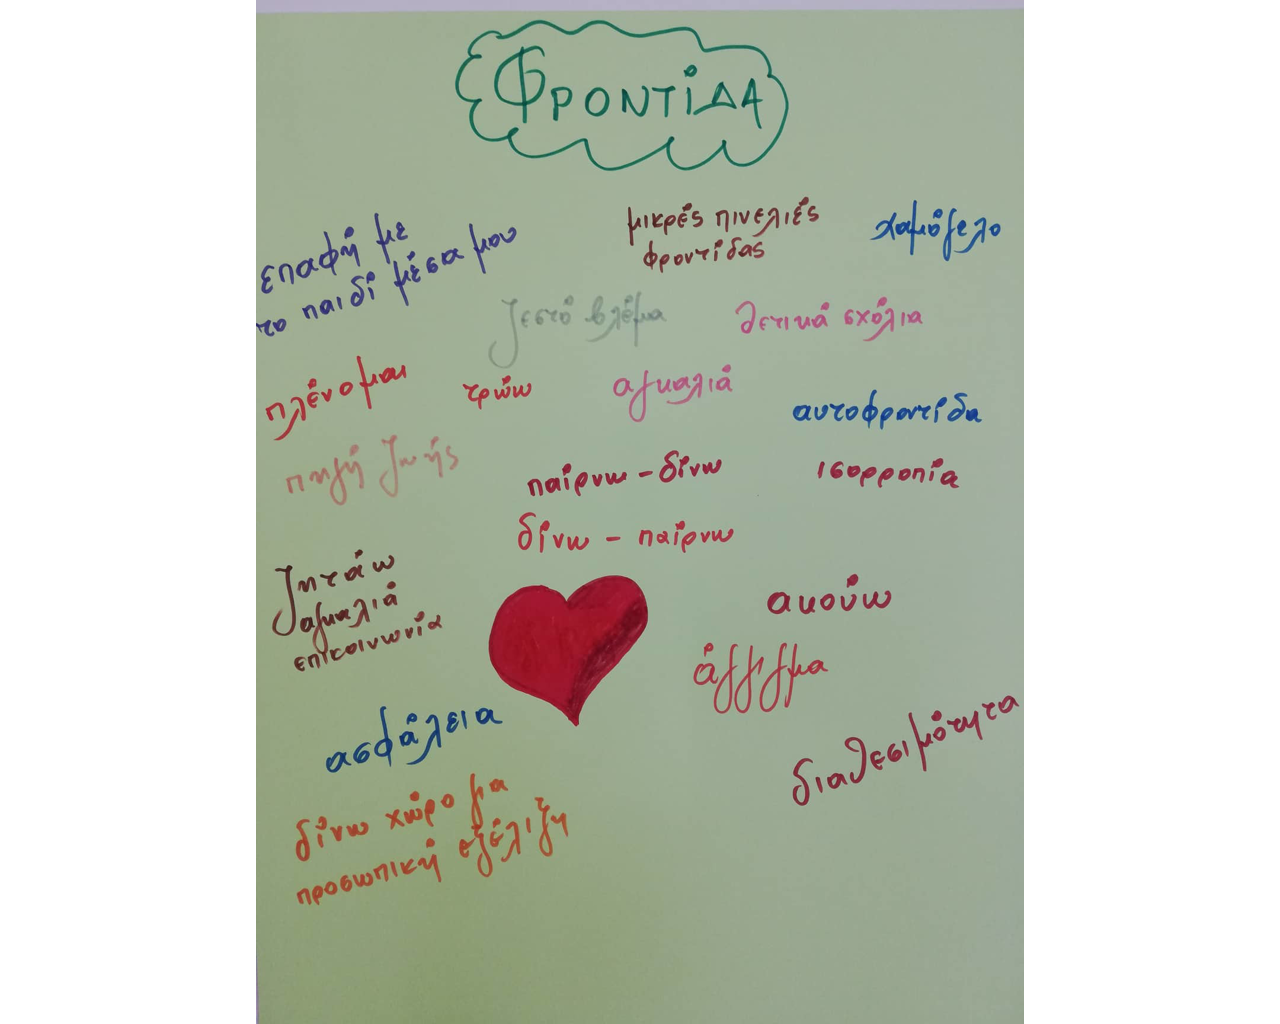 ΦΡΟΝΤίΔΑ
μικρές πινελιές
φροντίδας
χαμόγελο
επαφή με
το παιδί μέσα μου
ζεστό βλέμα
θετικά σχόλια
πλένομαι
τρώω
αγκαλιά
αυτοφροντίδα
πηγή ζωής
παίρνω - δίνω
ισορροπία
δίνω - παίρνω
ζητάω
αγκαλιά
επικοινωνία
ακούω
άγγιγμα
ασφάλεια
διαθεσιμότητα
δίνω χώρο για
προσωπική εξέλιξη